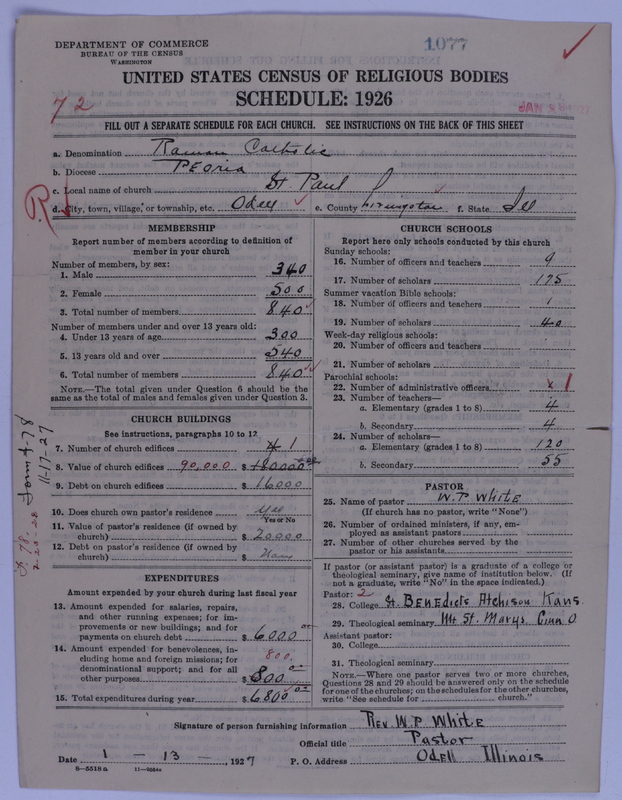 DEPARTMENT OF COMMERCE
BUREAU OF THE CENSUS
WASHINGTON
1077
UNITED STATES CENSUS OF RELIGIOUS BODIES
SCHEDULE: 1926
72
FILL OUT A SEPARATE SCHEDULE FOR EACH CHURCH. SEE INSTRUCTIONS ON THE BACK OF THIS SHEET
a. Denomination Roman Catholic
b. Diocese PEORIA
c. Local name of church St. Paul
d. City, town, village, or township, etc. Odell e. County Livingston f. State Ill
R
MEMBERSHIP
Report number of members according to definition of member in your church
Number of members, by sex:
1. Male 340
2. Female 500
3. Total number of members 840
Number of members under and over 13 years old:
4. Under 13 years of age 300
5. 13 years old and over 540
6. Total number of members 840
NOTE.—The total given under Question 6 should be
same as the total of males and females given under Question 3.
CHURCH BUILDINGS
See instructions, paragraphs 10 to 12
7. Number of church edifices 1
8. Value of church edifices 90,000 $ 180000
9. Debt on church edifices $ 16000
10. Does church own pastor's residence? Yes
Yes or No
11. Value of pastor's residence (if owned by
church) $ 20000
12. Debt on pastor's residence (if owned by
church) $ None
EXPENDITURES
Amount expended by your church during last fiscal year
13. Amount expended for salaries, repairs,
and other running expenses; for im-
provements or new buildings; and for
payments on church debt $ 6000
14. Amount expended for benevolences, in-
cluding home and foreign missions; for
denominational support; and for all
other purposes 800. $ 800
15. Total expenditures during year $ 6800
CHURCH SCHOOLS
Report here only schools conducted by this church
Sunday schools:
16. Number of officers and teachers 9
17. Number of scholars 175
Summer vacation Bible schools:
18. Number of officers and teachers 1
19. Number of scholars 40
Week-day religious schools:
20. Number of officers and teachers
21. Number of scholars
Parochial schools:
22. Number of administrative officers x 1
23. Number of teachers—
a. Elementary (grades 1 to 8) 4
b. Secondary 4
24. Number of scholars—
a. Elementary (grades 1 to 8) 120
b. Secondary 55
PASTOR
25. Name of pastor W. P. WHITE
(If church has no pastor, write "None")
26. Number of ordained ministers, if any, em-
ployed as assistant pastors
27. Number of other churches served by the
pastor or his assistants
If pastor (or assistant pastor) is a graduate of a college or
theological seminary, give name of institution below. (If
not a graduate, write "No" in the space indicated.)
Pastor: 2
28. College St. BENEDICTS Atchison Kans
29. Theological seminary Mt St. Marys. Cinn O
Assistant pastor:
30. College
31. Theological seminary
NOTE.—Where one pastor serves two or more churches,
Questions 28 and 29 should be answered only on the schedule
for one of the churches; on the schedules for the other churches,
write "See schedule for church."
Signature of person furnishing information REV. W. P. WHITE
Official title Pastor
Date 1 - 13 -, 1927 P. O. Address ODELL Illinois
8-5518a 11-9064
Form 478
11-17-27